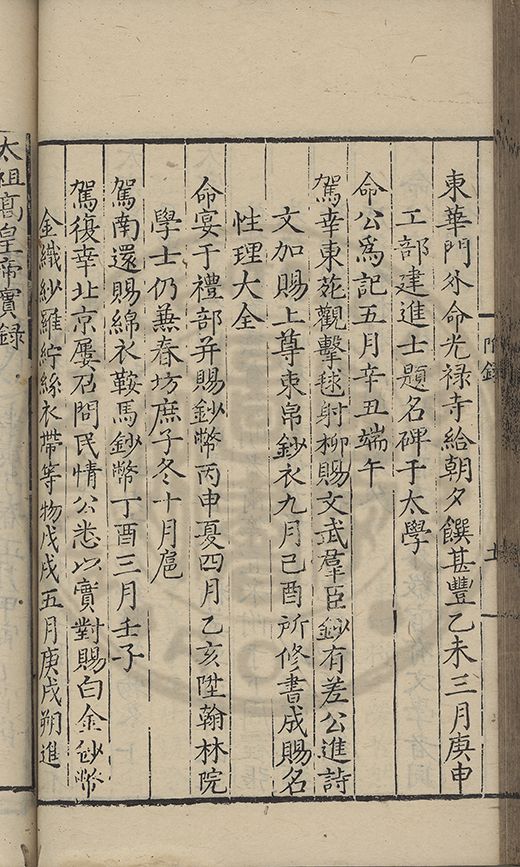 附錄
東華門外命光禄寺給朝夕饌甚豐乙未三月庚申
工部建進士題名碑于太學
命公爲記五月辛丑端午
駕幸東苑觀擊毬射柳賜文武羣臣鈔有差公進詩
文加賜上尊束帛鈔衣九月己酉所修書成賜名
性理大全
命宴于禮部并賜鈔幣丙申夏四月乙亥陞翰林院
學士仍兼春坊庶子冬十月扈
駕南還賜綿衣鞍馬鈔幣丁酉三月壬子
駕復幸北京屢召問民情公悉以實對賜白金鈔幣
金織紗羅紵絲衣帶等物戊戌五月庚戌朔進
太祖高皇帝實録